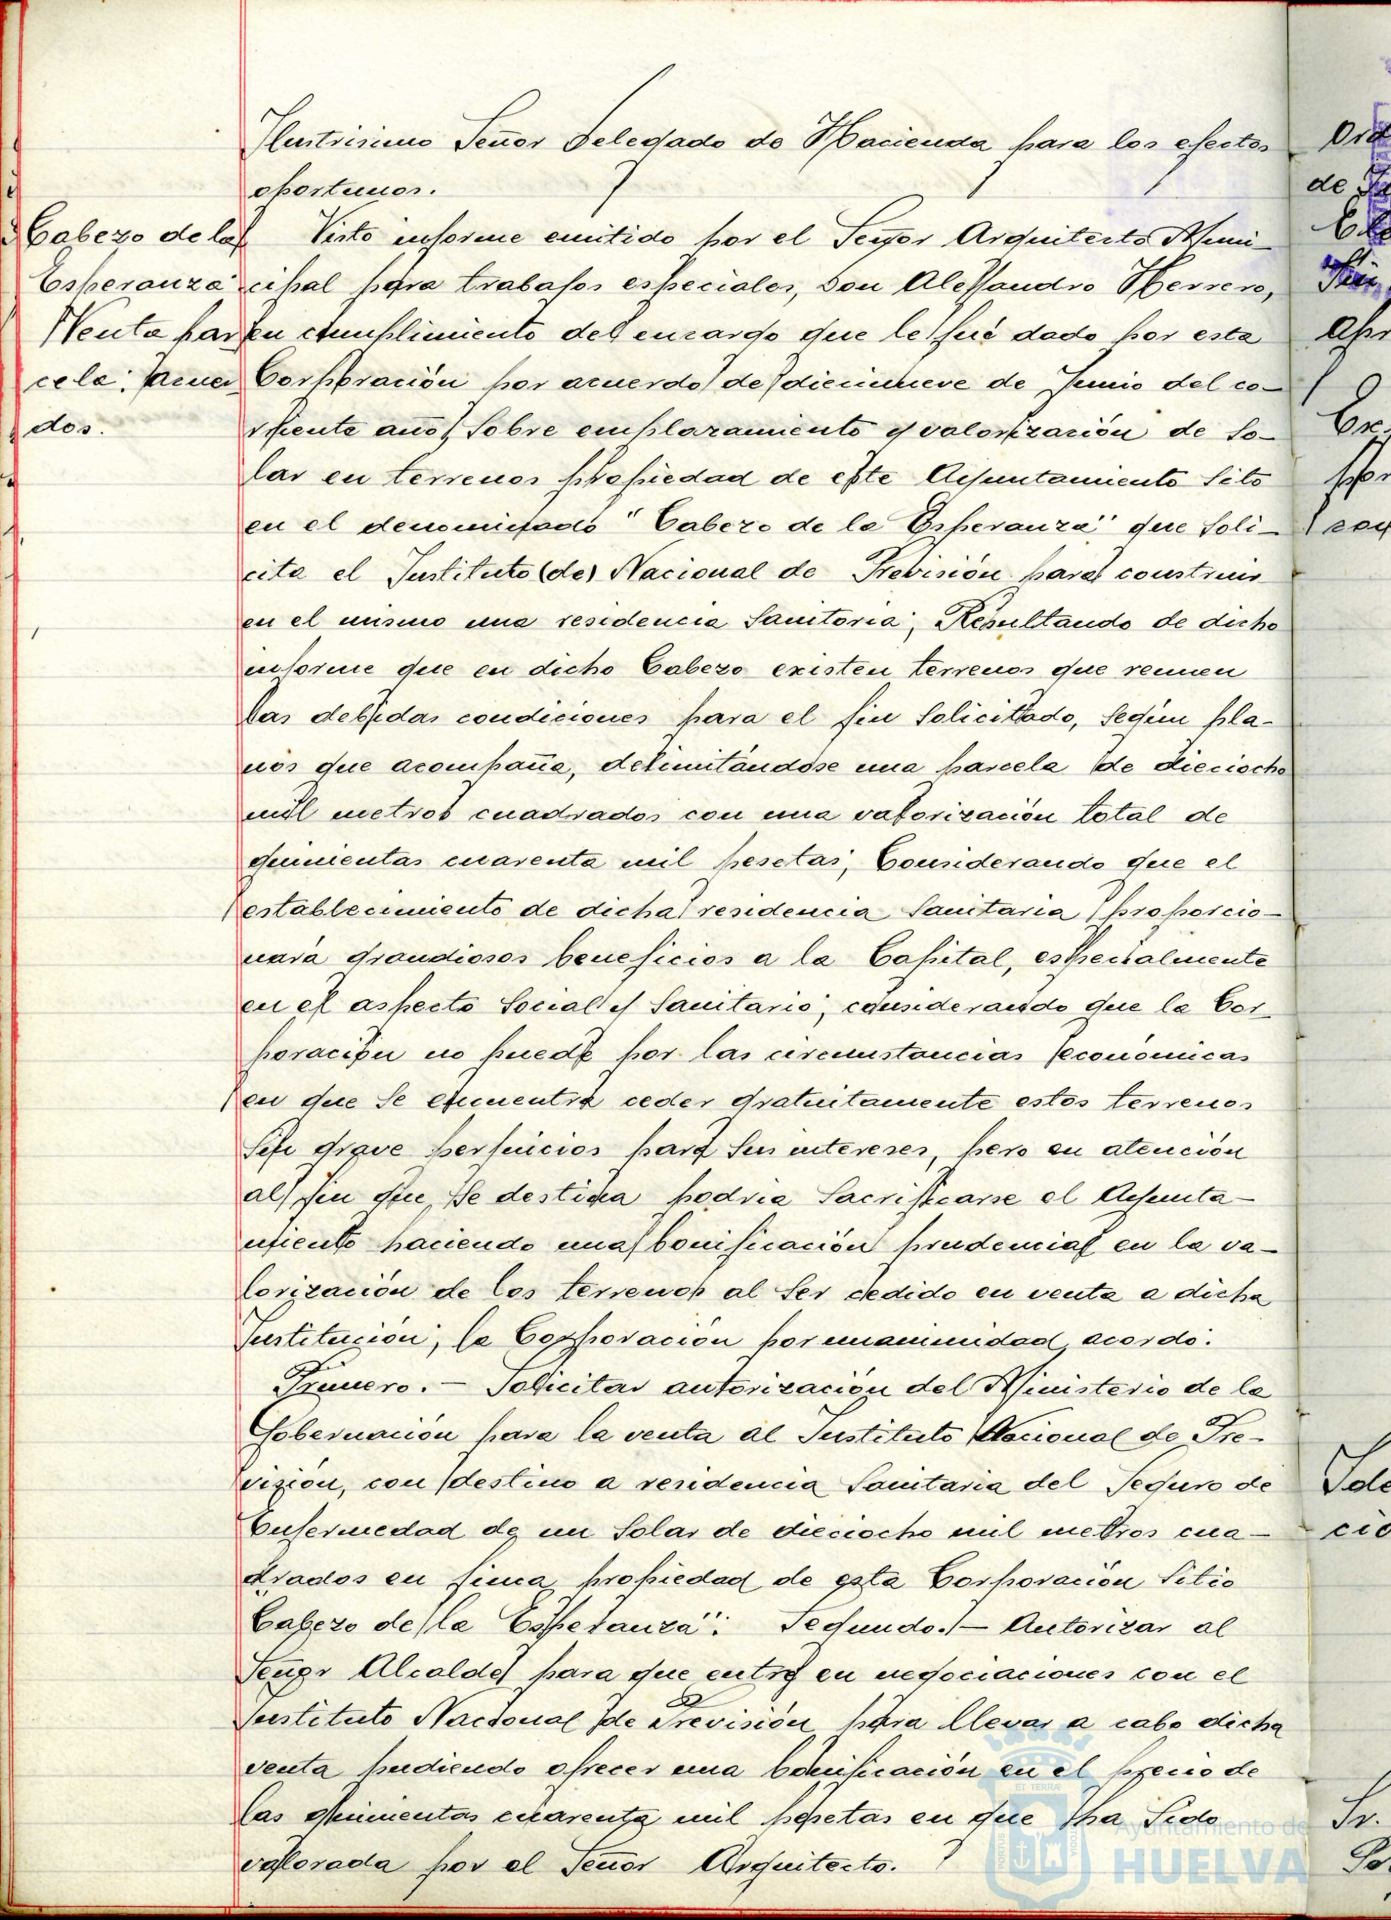 Ilustrisimo Señor Delegado de Hacienda para los efectos
oportunos.
Cabezo de la
Esperanza
Venta par
cela; Acuer
dos.
Visto informe emitido por el Señor Arquitecto Muni-
cipal para trabajos especiales, Don Alejandro Herrero,
en cumplimiento del encargo que le fué dado por esta
Corporación por acuerdo de diecinueve de Junio del co-
rriente año, sobre emplazamiento y valorización de so-
lar en terrenos propiedad de este Ayuntamiento sito
en el denominado "Cabezo de la Esperanza" que soli-
cita el Instituto (de) Nacional de Previsión para construir
en el mismo una residencia Sanitaria; Resultando de dicho
informe que en dicho Cabezo existen terrenos que reunen
las debidas condiciones para el fin solicitado, según pla-
nos que acompaña, delimitándose una parcela de dieciocho
mil metros cuadrados con una valorización total de
quinientas cuarenta mil pesetas; Considerando que el
establecimiento de dicha residencia Sanitaria proporcio-
nará grandiosos beneficios a la Capital, especialmente
en el aspecto Social y Sanitario; considerando que la Cor-
poración no puede por las circunstancias económicas
en que se encuentra ceder gratuitamente estos terrenos
sin grave perjuicios para sus intereses, pero en atención
al fin que se destina podria Sacrificarse el Ayunta-
miento haciendo una bonificación prudencial en la va-
lorización de los terrenos al ser cedido en venta a dicha
Institución; la Corporación por unanimidad acordó:
Primero. - Solicitar autorización del Ministerio de la
Gobernación para la venta al Instituto Nacional de Pre-
visión, con destino a residencia Sanitaria del Seguro de
Enfermedad de un Solar de dieciocho mil metros cua-
drados en finca propiedad de esta Corporación Sitio
Cabezo de la Esperanza". Segundo. - Autorizar al
Señor Alcalde para que entre en negociaciones con el
Instituto Nacional de Previsión para llevar a cabo dicha
venta pudiendo ofrecer una bonificación en el precio de
las quinientas cuarenta mil pesetas en que ha sido
valorada por el Señor Arquitecto.
ET TERRAE
Ayuntamiento de
HUELVA